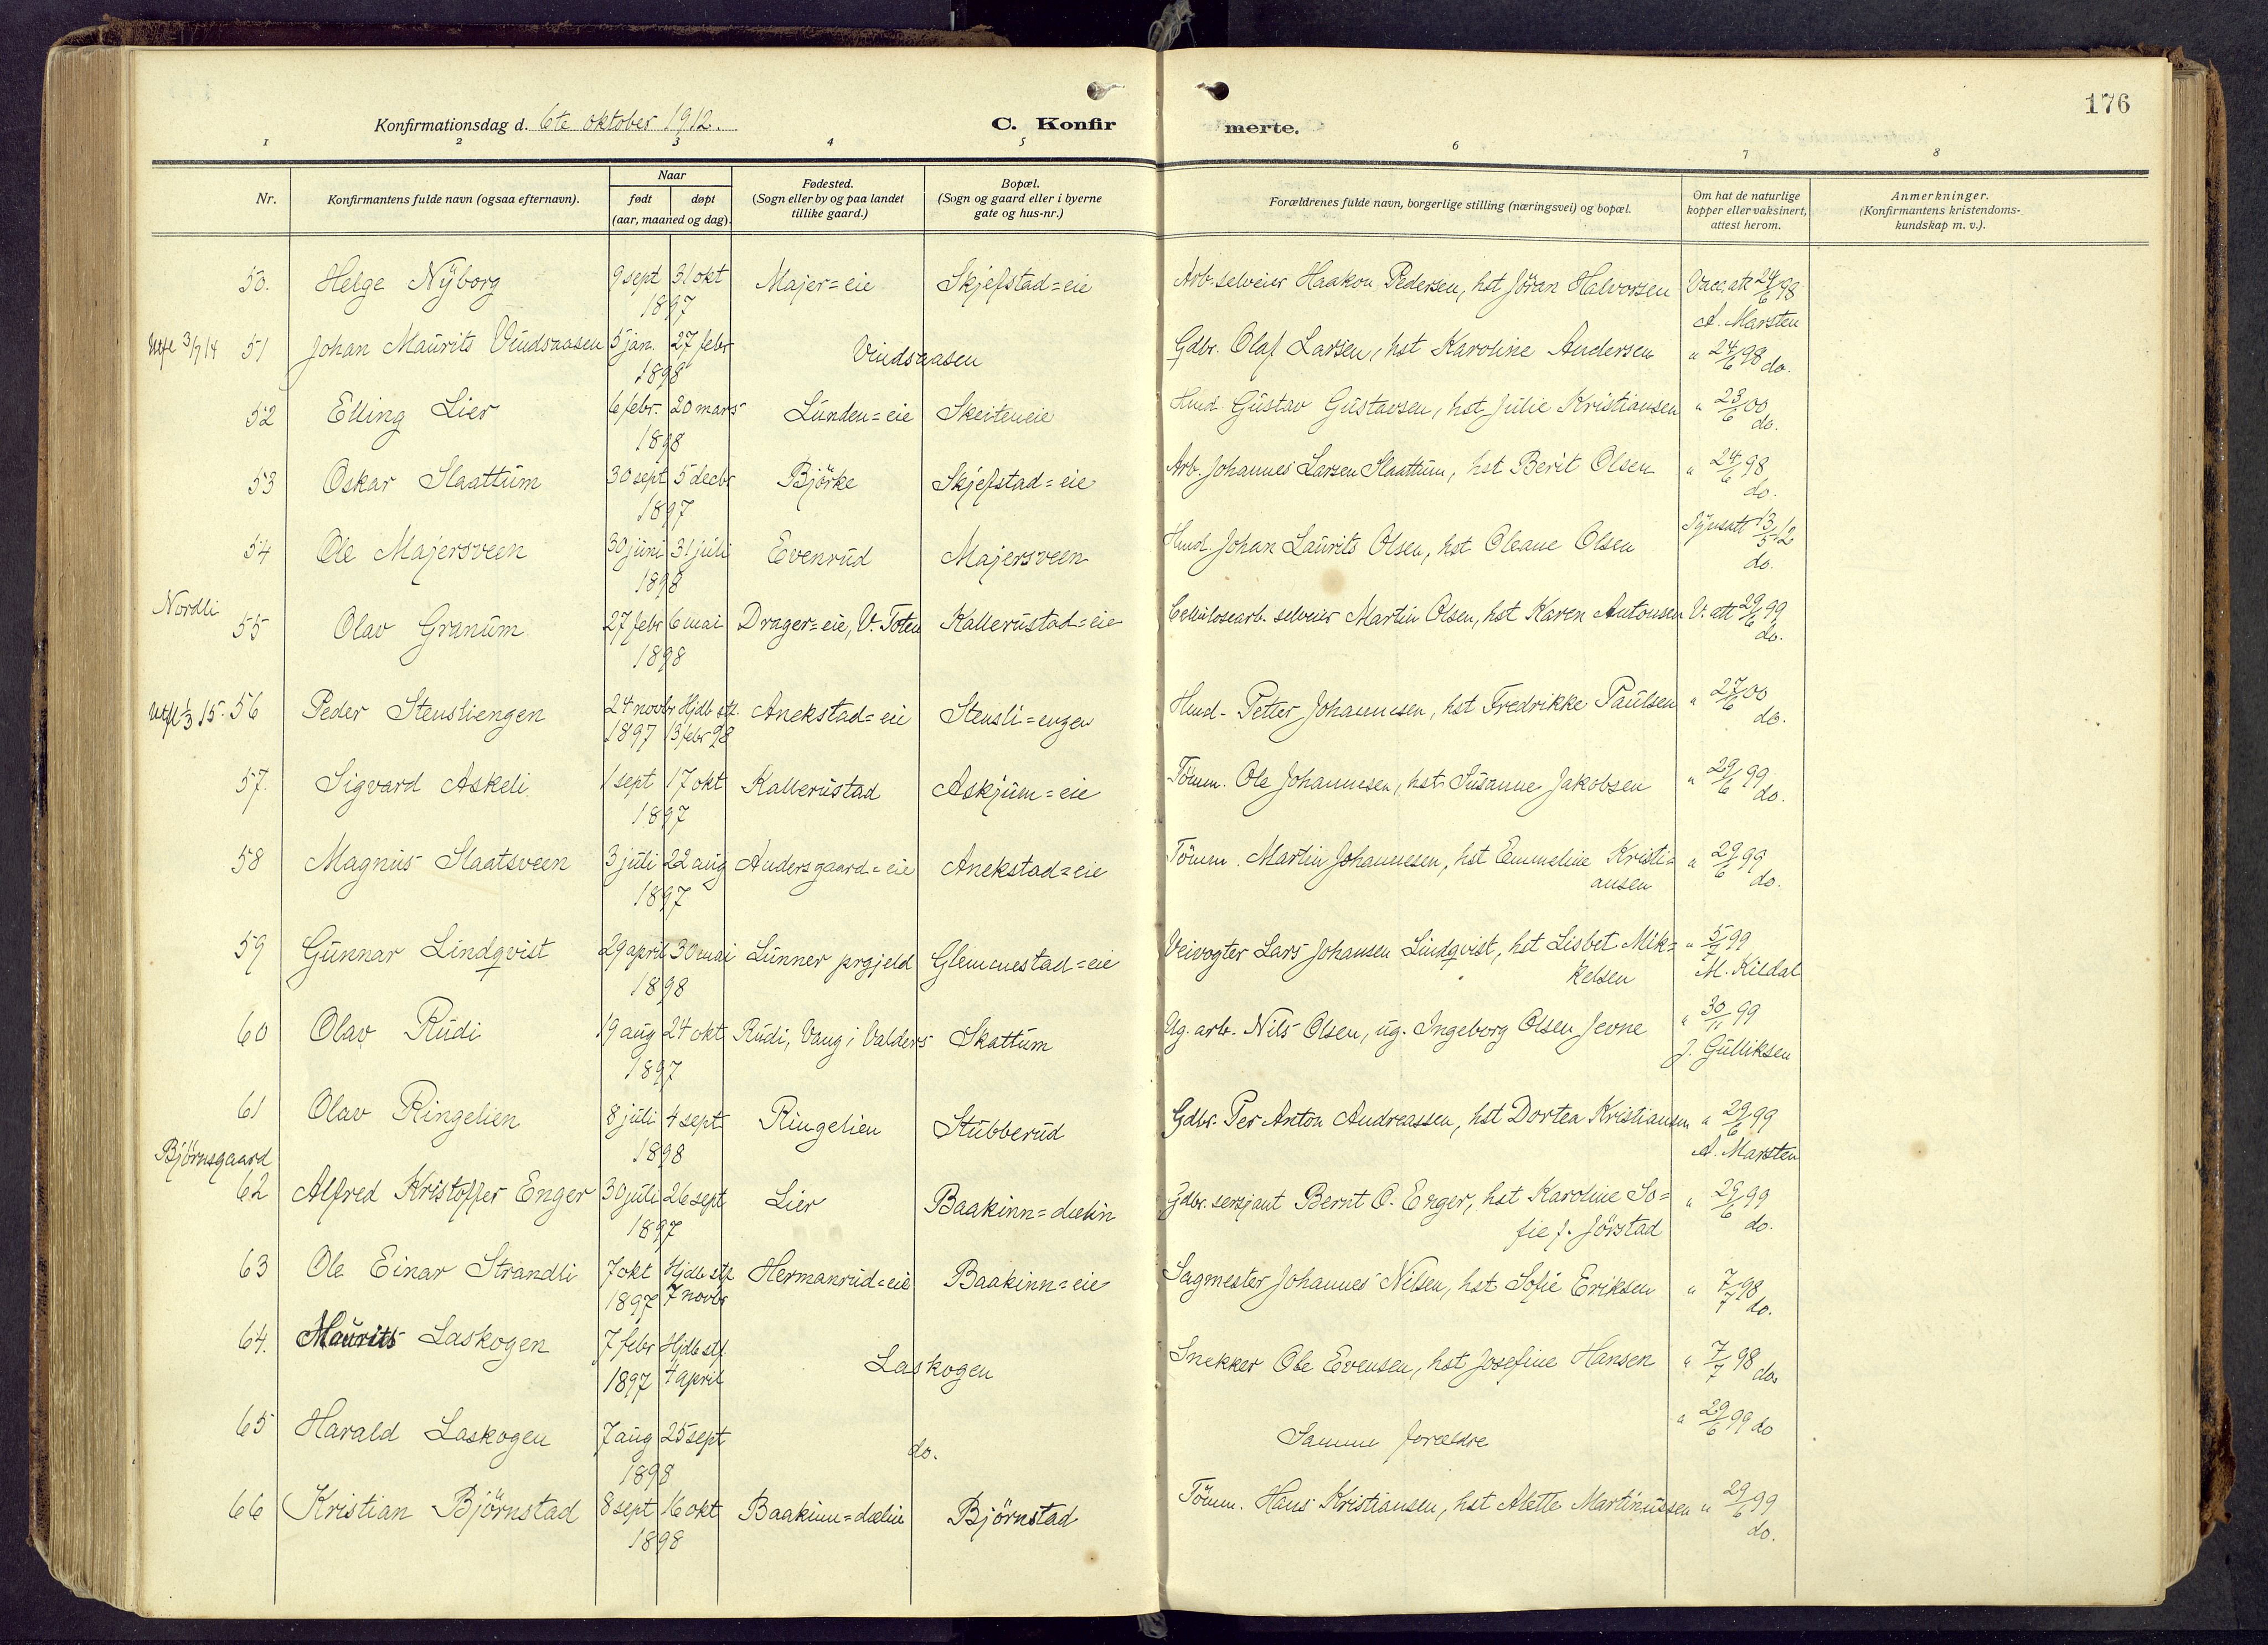 176
Konfirmationsdag d. 6te oktober 1912. C. Konfirmerte.
1 2 3 4 5 6 7 8
Nr. Konfirmantens fulde navn (ogsaa efternavn). Naar født døpt (aar, maaned og dag). Fødested. (Sogn eller by og paa landet tillike gaard.) Bopæl. (Sogn og gaard eller i byerne gate og hus-nr.) Forældrenes fulde navn, borgerlige stilling (næringsvei) og bopæl. Om hat de naturlige kopper eller vaksinert, attest herom. Anmerkninger. (Konfirmantens kristendoms-kundskap m. v.).
50. Helge Nÿborg 9 sept 31 okt Majer=eie Skjefstad=eie Arb. selveier Haakon Pedersen, hst Jöran Halvorsen Vacc. att 24/6 98
1897 A. Marsten
3/7 14 51 Johan Maurits Vindsnaasen 5 jan. 27 febr Vindsnaasen Gdbr. Olaf Larsen, hst Karoline Andersen " 24/6 98 do.
1898
52 Elling Lier 6 febr. 20 mars Lunden=eie Skeiteneie Hmd. Gustav Gustavsen, hst Julie Kristiansen " 23/6 00
1898 do.
53 Oskar Slaattum 30 sept 5 decbr Björke Skjefstad=eie Arb. Johannes Larsen Slaattum, hst Berit Olsen " 24/6 98
1897 do.
54 Ole Majersveen 30 juni 31 juli Evenrud Majersveen Hmd. Johan Laurits Olsen, hst Oleane Olsen 13/5 12
1898 do.
Nordli
55 Olav Granum 27 febr 6 mai Drager=eie, V. Toten Kallerustad=eie Cellulosearb. selveier Martin Olsen, hst Karen Antonsen V. att 29/6 99
1898 do.
Utfl 1/3 15. 56 Peder Stensliengen 24 novbr Hjdb stf. Anekstad=eie Stensli=engen Hmd. Petter Johannesen, hst Fredrikke Paulsen " 27/6 00
1897 13 febr 98 do.
57. Sigvard Askeli 1 sept 17 okt Kallerustad Askjum=eie Tömm. Ole Johannesen, hst Susanne Jakobsen " 29/6 99
1897 do.
58 Magnus Slaatsveen 3 juli 22 aug Andersgaard=eie Anekstad=eie Tömm. Martin Johannesen, hst Emmeline Kristi= " 29/6 99
1897 ansen do.
59 Gunnar Lindqvist 29 april 30 mai Lunner prgjeld Glemmestad=eie Veivogter Lars Johansen Lindqvist, hst Lisbet Mik= " 5/7 99
1898 kelsen M. Kildal
60 Olav Rudi 19 aug 24 okt Rudi, Vang i Valders Skattum Ug. arb. Nils Olsen, ug. Ingeborg Olsen Jevne " 30/11 99
1897 J. Gulliksen
61 Olav Ringelien 8 juli 4 sept Ringelien Stubberud Gdbr. Per Anton Andreassen, hst Dortea Kristiansen " 29/6 99
1898 A. Marsten
Björnsgaard
62 Alfred Kristoffer Enger 30 juli 26 sept Lier Baakinn=dælin Gdbr. sersjant Bernt O. Enger, hst Karoline So= " 29/6 99
1897 fie J. Jörstad do.
63 Ole Einar Strandli 7 okt Hjdb stf. Hermanrud=eie Baakinn=eie Sagmester Johannes Nilsen, hst Sofie Eriksen " 7/7 98
1897 7 novbr do.
64. Maurits Laskogen 7 febr Hjdb stf. Laskogen Snekker Ole Evensen, hst Josefine Hansen " 7/7 98 do.
1897 4 april
65 Harald Laskogen 7 aug 25 sept do. Samme forældre " 29/6 99 do
1898
66 Kristian Björnstad 8 sept 16 okt Baakinn=dælin Björnstad Tömm. Hans Kristiansen, hst Alette Martinussen " 29/6 99
1898 do.